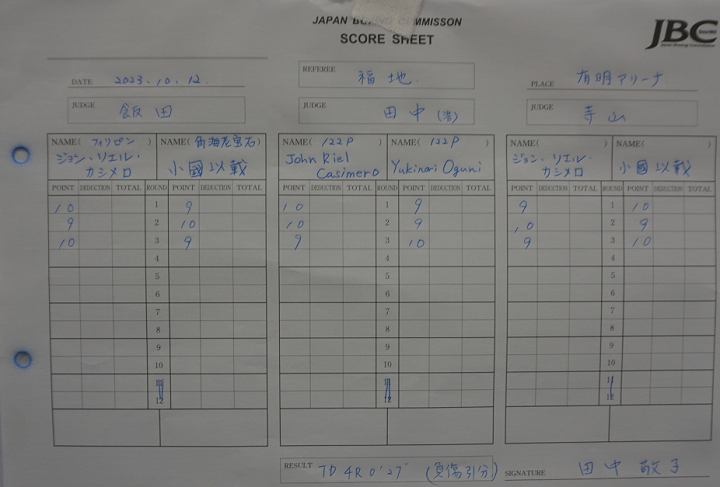 JAPAN BOXING COMMISSON
SCORE SHEET
JBC
DATE 2023.10.12.
REFEREE 福地
PLACE 有明アリーナ
JUDGE 飯田
JUDGE 田中(浩)
JUDGE 寺山
NAME(フィリピン) NAME(角海老宝石) NAME(122P) NAME(122P) NAME( ) NAME( )
ジョン・リエル・カシメロ 小國以載 John Riel Casimero Yukinori Oguni ジョン・リエル・カシメロ 小國以載
POINT DEDUCTION TOTAL ROUND POINT DEDUCTION TOTAL POINT DEDUCTION TOTAL ROUND POINT DEDUCTION TOTAL POINT DEDUCTION TOTAL ROUND POINT DEDUCTION TOTAL
10 1 9 10 1 9 9 1 10
9 2 10 10 2 9 10 2 9
10 3 9 9 3 10 9 3 10
4 4 4
5 5 5
6 6 6
7 7 7
8 8 8
9 9 9
10 10 10
11 11 11
12 12 12
RESULT TD 4R 0'27" (負傷引分)
SIGNATURE 田中敬子